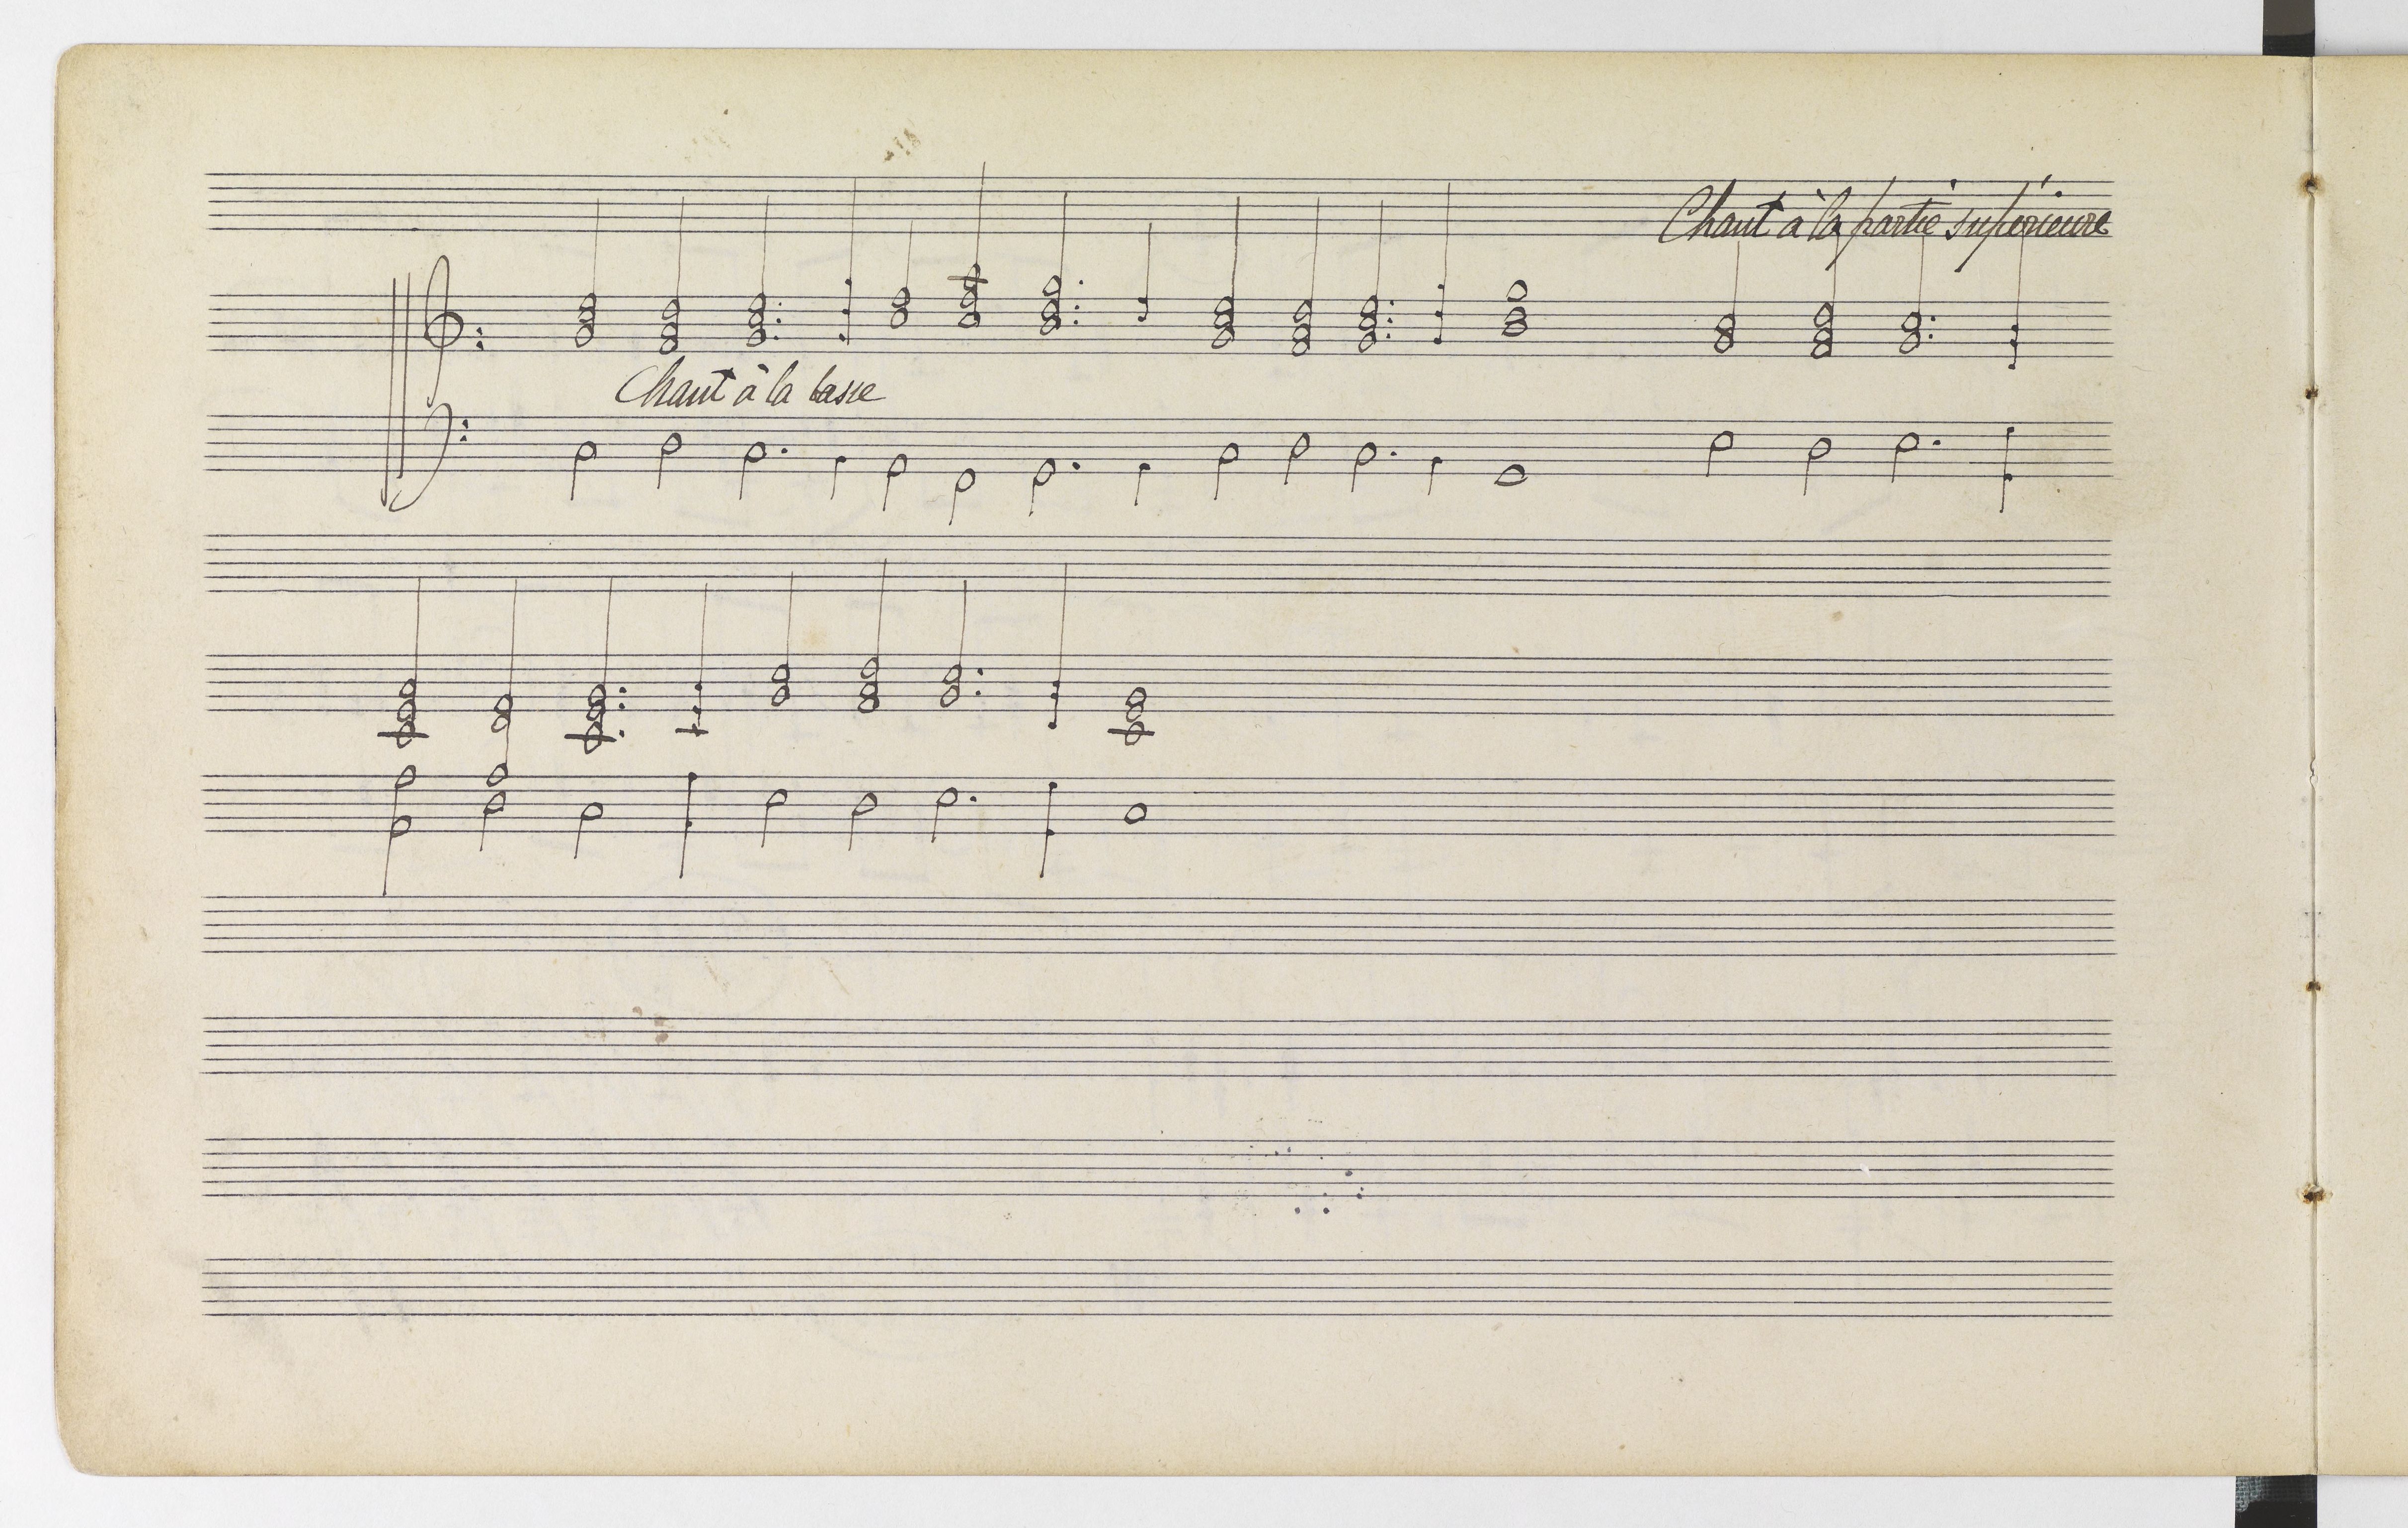 Chant à la partie supérieure
Chant à la basse